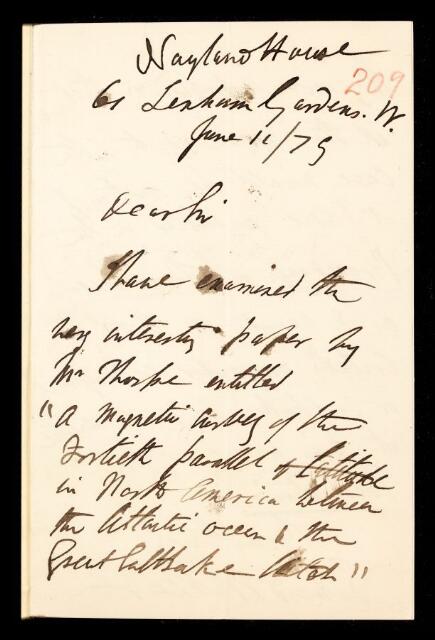 Nayland House
209
61 Lexham Gardens. W.
June 11/79
Dear Sir
I have examined the
very interesting paper by
Mr Thorpe entitled
"A magnetic survey of the
Fortieth parallel of Latitude
in North America between
the Atlantic ocean & the
Great Salt Lake Utah"